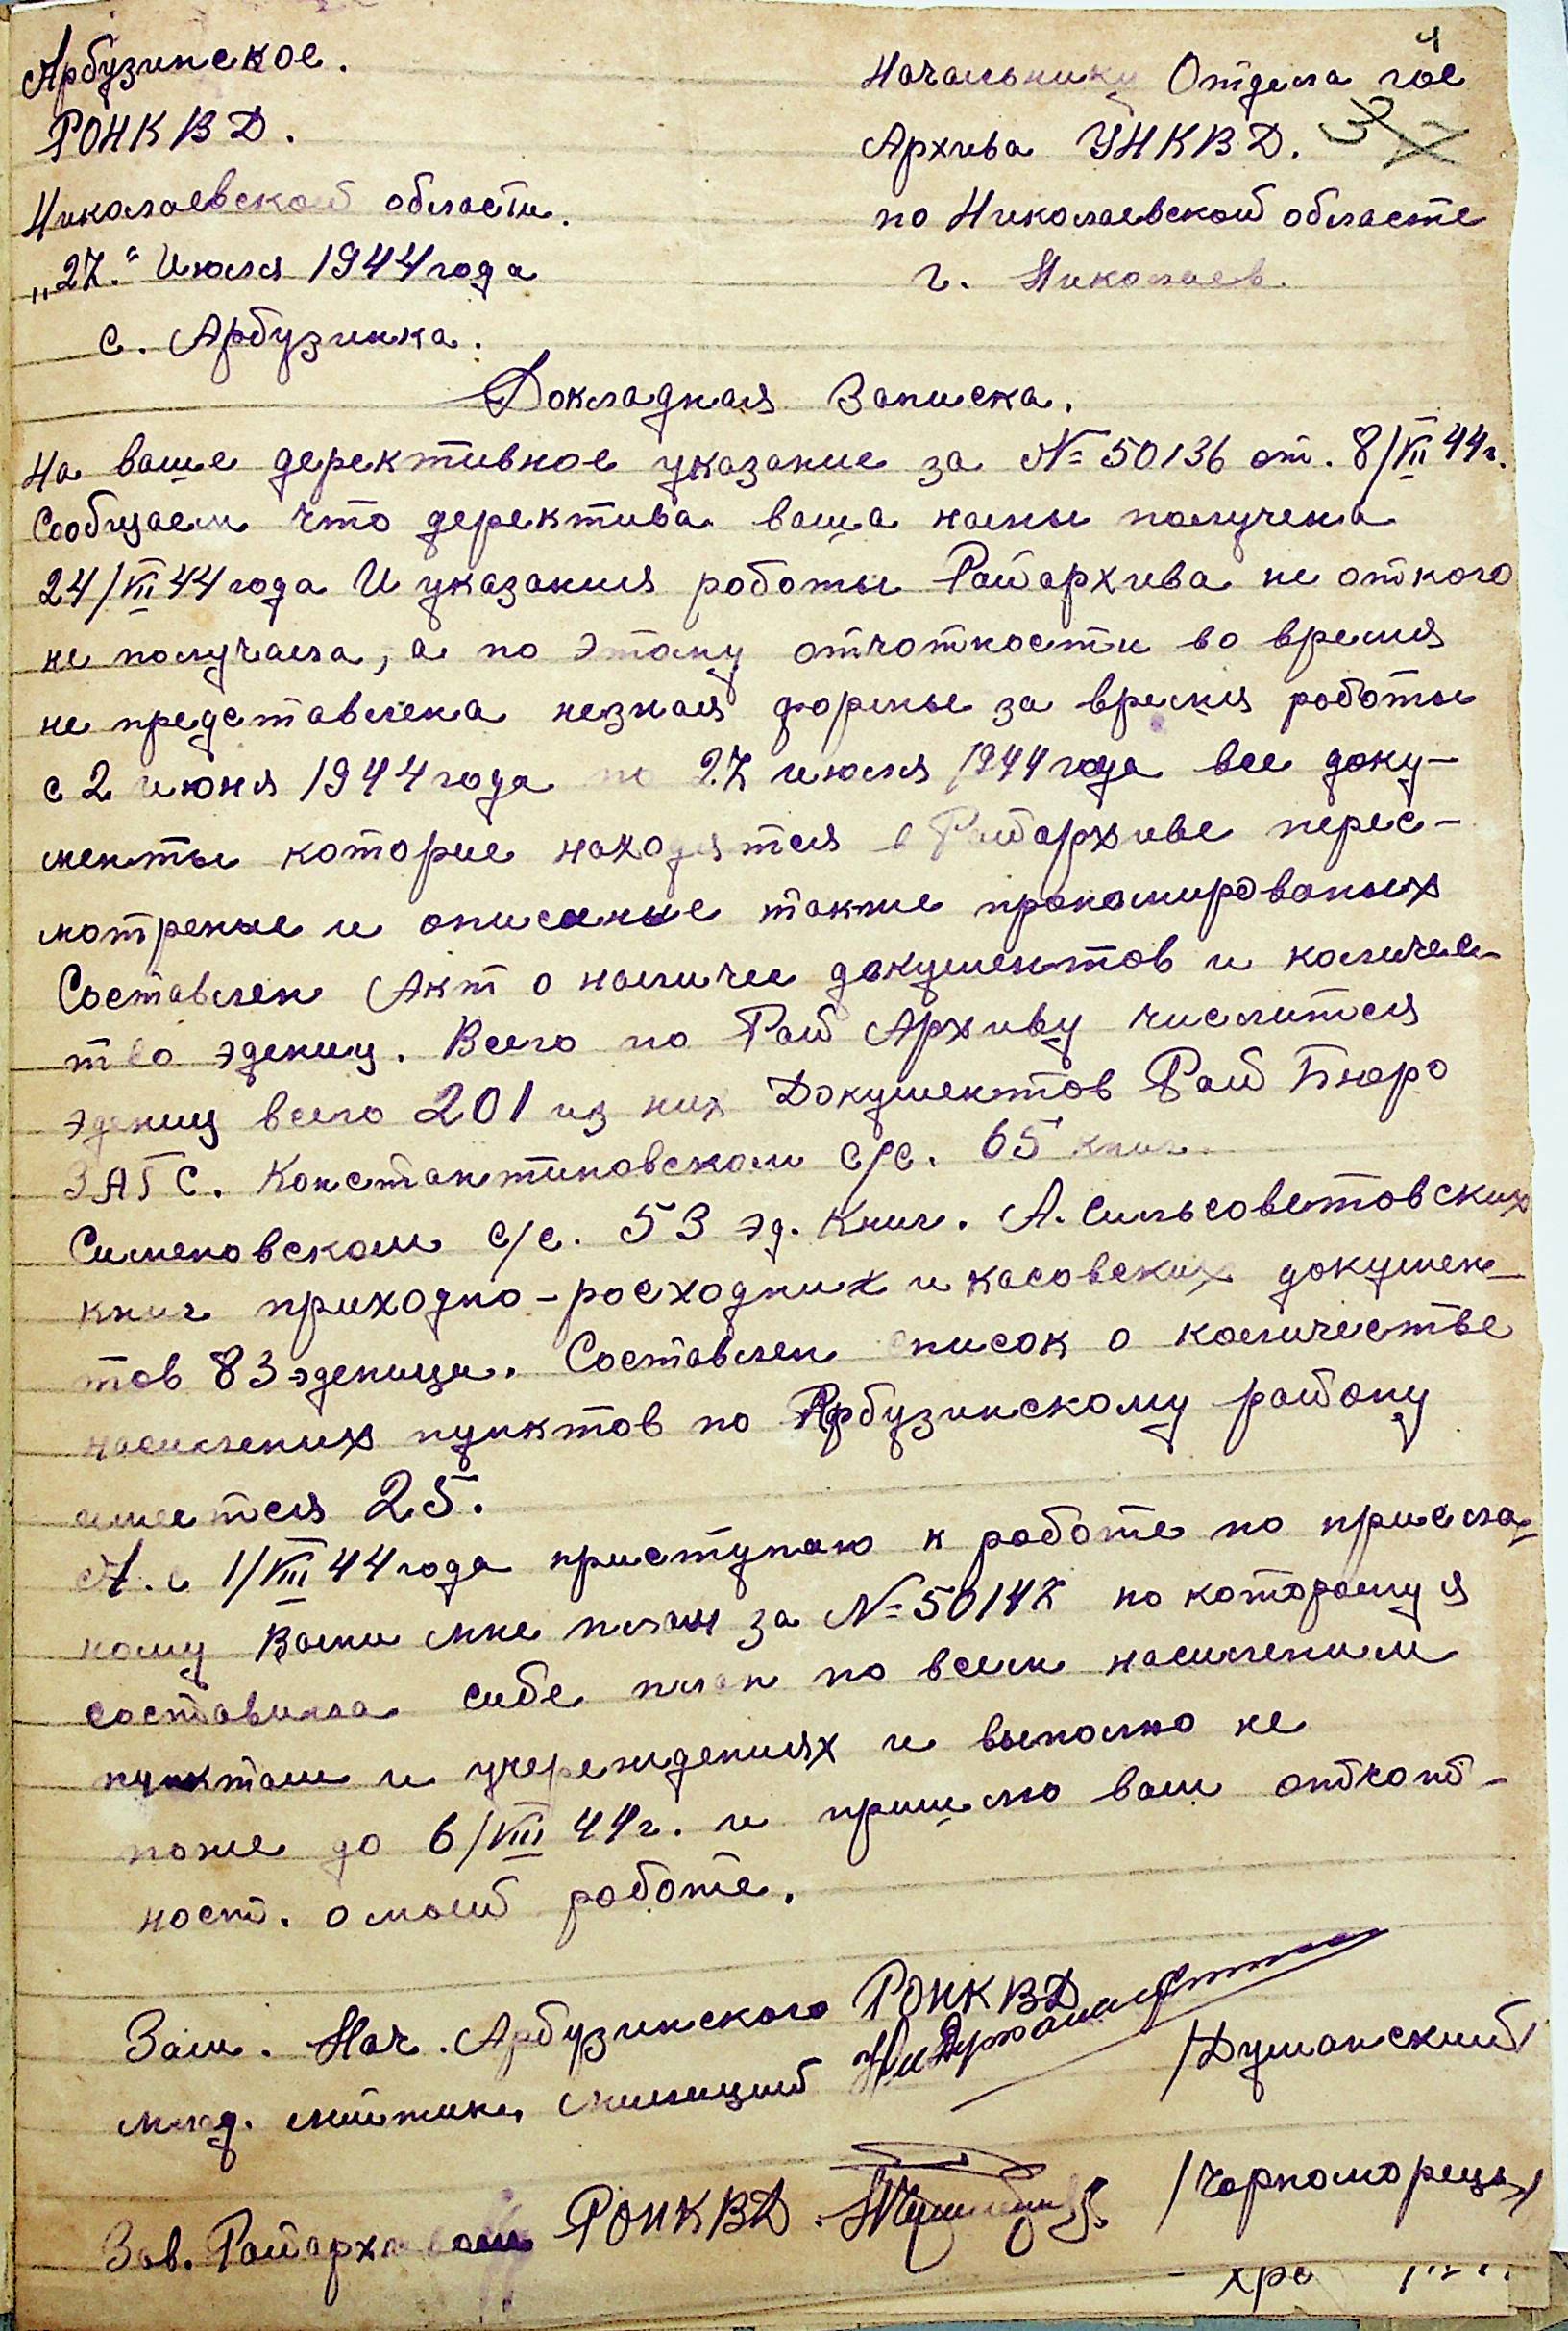 4
Арбузинское.
РОНКВД.
Николаевской области.
„27.“ Июля 1944 года
с. Арбузинка.
Начальнику Отдела гос
Архива УНКВД.
по Николаевской областе
г. Николаев.
Докладная Записка.
На ваше дерективное указание за № 50136 от. 8/VII 44г.
Сообщаем что деректива ваша намы получена
24/VII 44 года И указания роботы Райархива не от кого
не получала, а по этому отчотности во время
не представлена незная формы за время роботы
с 2 июня 1944 года по 27 июля 1944 года все доку-
менты которие находятся в Райархиве перес-
мотреные и описаные также прономированых
Составлен Акт о наличее документов и количес-
тво эдениц. Всего по Рай Архиву числится
эдениц всего 201 из них Документов Рай Бюро
ЗАГС. Константиновском с/с. 65 книг.
Сименовском с/с. 53 эд. Книг. А. сильсоветовских
книг приходно-росходних и касовских докумен-
тов 83 эденици. Составлен список о количестве
насилених пунктов по Арбузинскому району
имеется 25.
А. с 1/VIII 44 года приступаю к работе по присла-
ному Вами мне план за № 50147 по которому я
составила себе план по всем насиленим
пунктам и учереждениях и выполню не
поже до 6/VIII 44г. и пришлю вам отчот-
ност. о моей роботе.
Зам. Нач. Арбузинского РОНКВД
млад. лейтин. милиций /Думанский/
Зав. Райархивом РОНКВД. /Чорноморець/